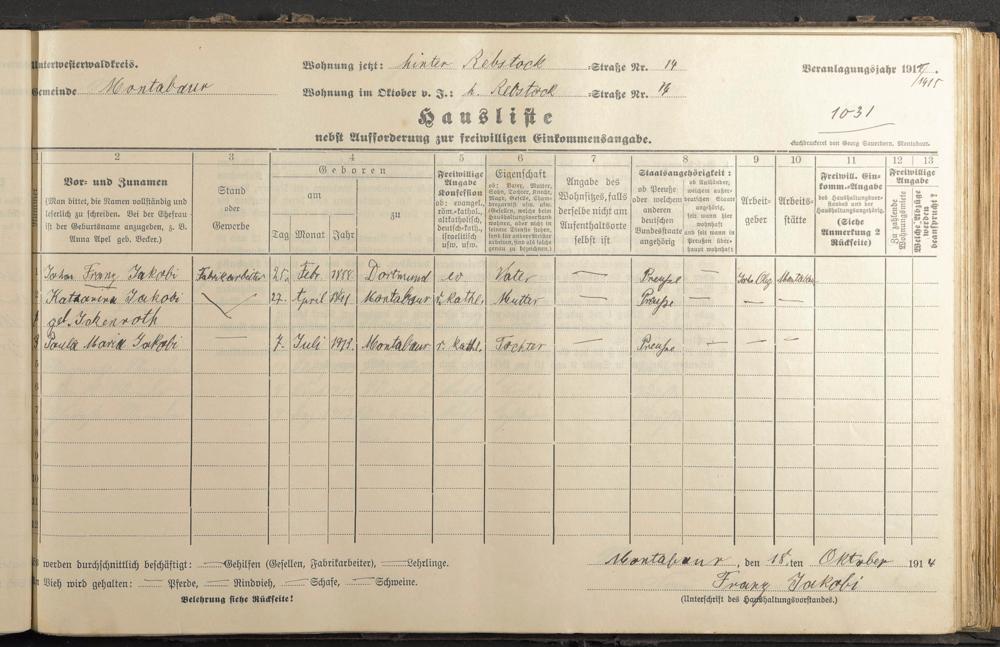 Unterwesterwaldkreis.
Wohnung jetzt: hinter Rebstock =Straße Nr. 14
Veranlagungsjahr 191
1415
Gemeinde Montabaur
Wohnung im Oktober v. J.: h. Rebstock =Straße Nr. 14
Hausliste
1031
nebst Aufforderung zur freiwilligen Einkommensangabe.
Buchdruckerei von Georg Sauerborn, Montabaur.
1 2 3 4 5 6 7 8 9 10 11 12 13
Vor- und Zunamen
(Man bittet, die Namen vollständig und
leserlich zu schreiben. Bei der Ehefrau
ist der Geburtsname anzugeben, z. B.
Anna Apel geb. Becker.)
Stand
oder
Gewerbe
Geboren
am
Tag Monat Jahr
zu
Freiwillige
Angabe
Konfession
ob: evangel.,
röm.-kathol.,
altkatholisch,
deutsch-kath.,
israelitisch
usw. usw.
Eigenschaft
ob: Vater, Mutter,
Sohn, Tochter, Knecht,
Magd, Geselle,
Angabe des
Wohnsitzes, falls
derselbe nicht am
Aufenthaltsorte
selbst ist
Staatsangehörigkeit:
ob Preuße
oder welchem
anderen
deutschen
Bundesstaate
angehörig
ob Ausländer,
welchem außer-
deutschen Staate
angehörig,
seit wann hier
wohnhaft
und seit wann in
Preußen über-
haupt wohnhaft
Arbeit-
geber
Arbeits-
stätte
Freiwill. Ein-
komm.-Angabe
des Haushaltungsvor-
standes und der
Haushaltungsangehörig.
(Siehe
Anmerkung 2
Rückseite)
Freiwillige
Angabe
Zu zahlende
Wohnungsmiete
Welche Abzüge
werden
beansprucht?
1 Franz Jakobi Fabrikarbeiter 25. Febr. 1888 Dortmund ev. Vater — Preuße — Montabaur
2 Katharina Jakobi 27. April Montabaur r. kathl. Mutter — Preuße — — —
geb. Jckenroth
3 Paula Maria Jakobi — 7. Juli 1913. Montabaur r. kathl. Tochter — Preuße — — —
5
6
7
8
9
10
11
12
werden durchschnittlich beschäftigt: — Gehilfen (Gesellen, Fabrikarbeiter), — Lehrlinge.
Montabaur, den 18.ten Oktober 1914
An Vieh wird gehalten: — Pferde, — Rindvieh, — Schafe, — Schweine.
Franz Jakobi
Belehrung siehe Rückseite!
(Unterschrift des Haushaltungsvorstandes.)